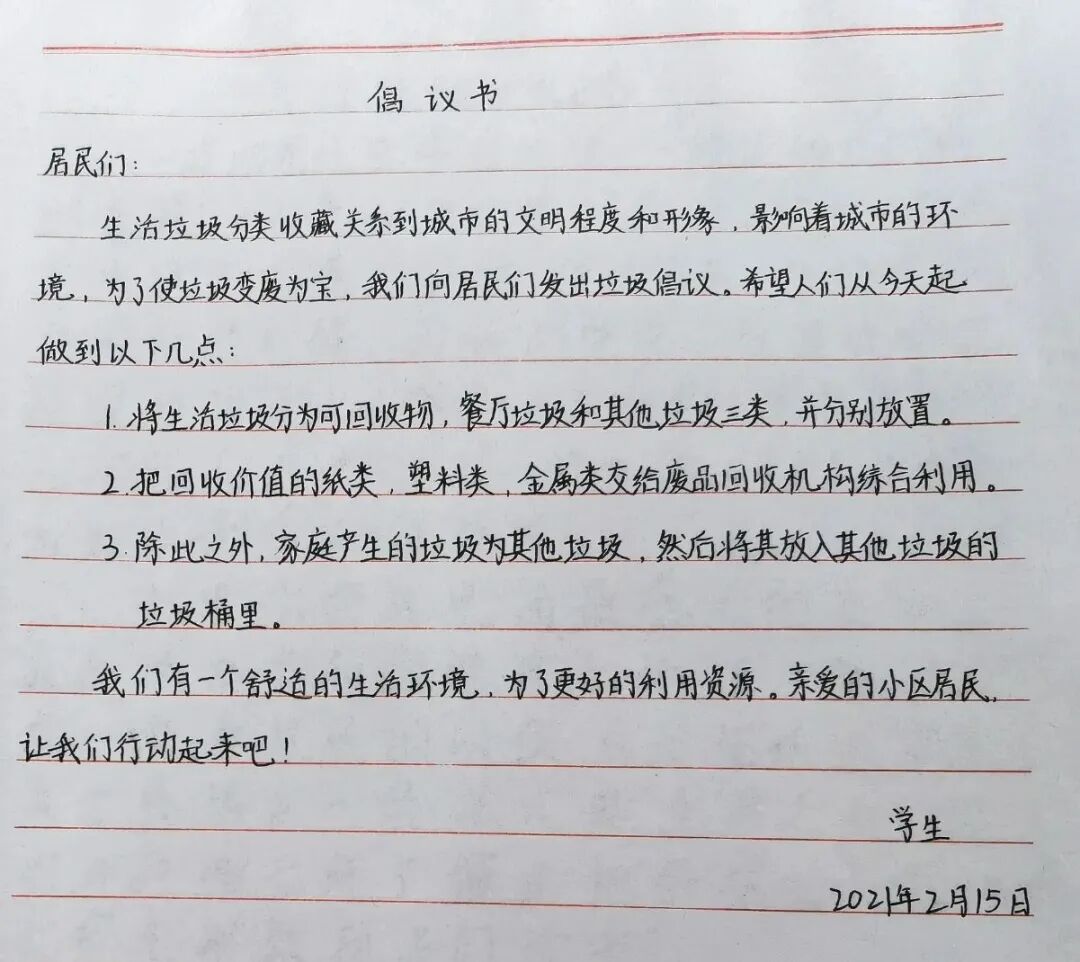 倡议书
居民们:
生活垃圾分类收藏关系到城市的文明程度和形象,影响着城市的环
境,为了使垃圾变废为宝,我们向居民们发出垃圾倡议。希望人们从今天起
做到以下几点:
1.将生活垃圾分为可回收物,餐厅垃圾和其他垃圾三类,并分别放置。
2.把回收价值的纸类,塑料类,金属类交给废品回收机构综合利用。
3.除此之外,家庭产生的垃圾为其他垃圾,然后将其放入其他垃圾的
垃圾桶里。
我们有一个舒适的生活环境,为了更好的利用资源。亲爱的小区居民,
让我们行动起来吧!
学生
2021年2月15日